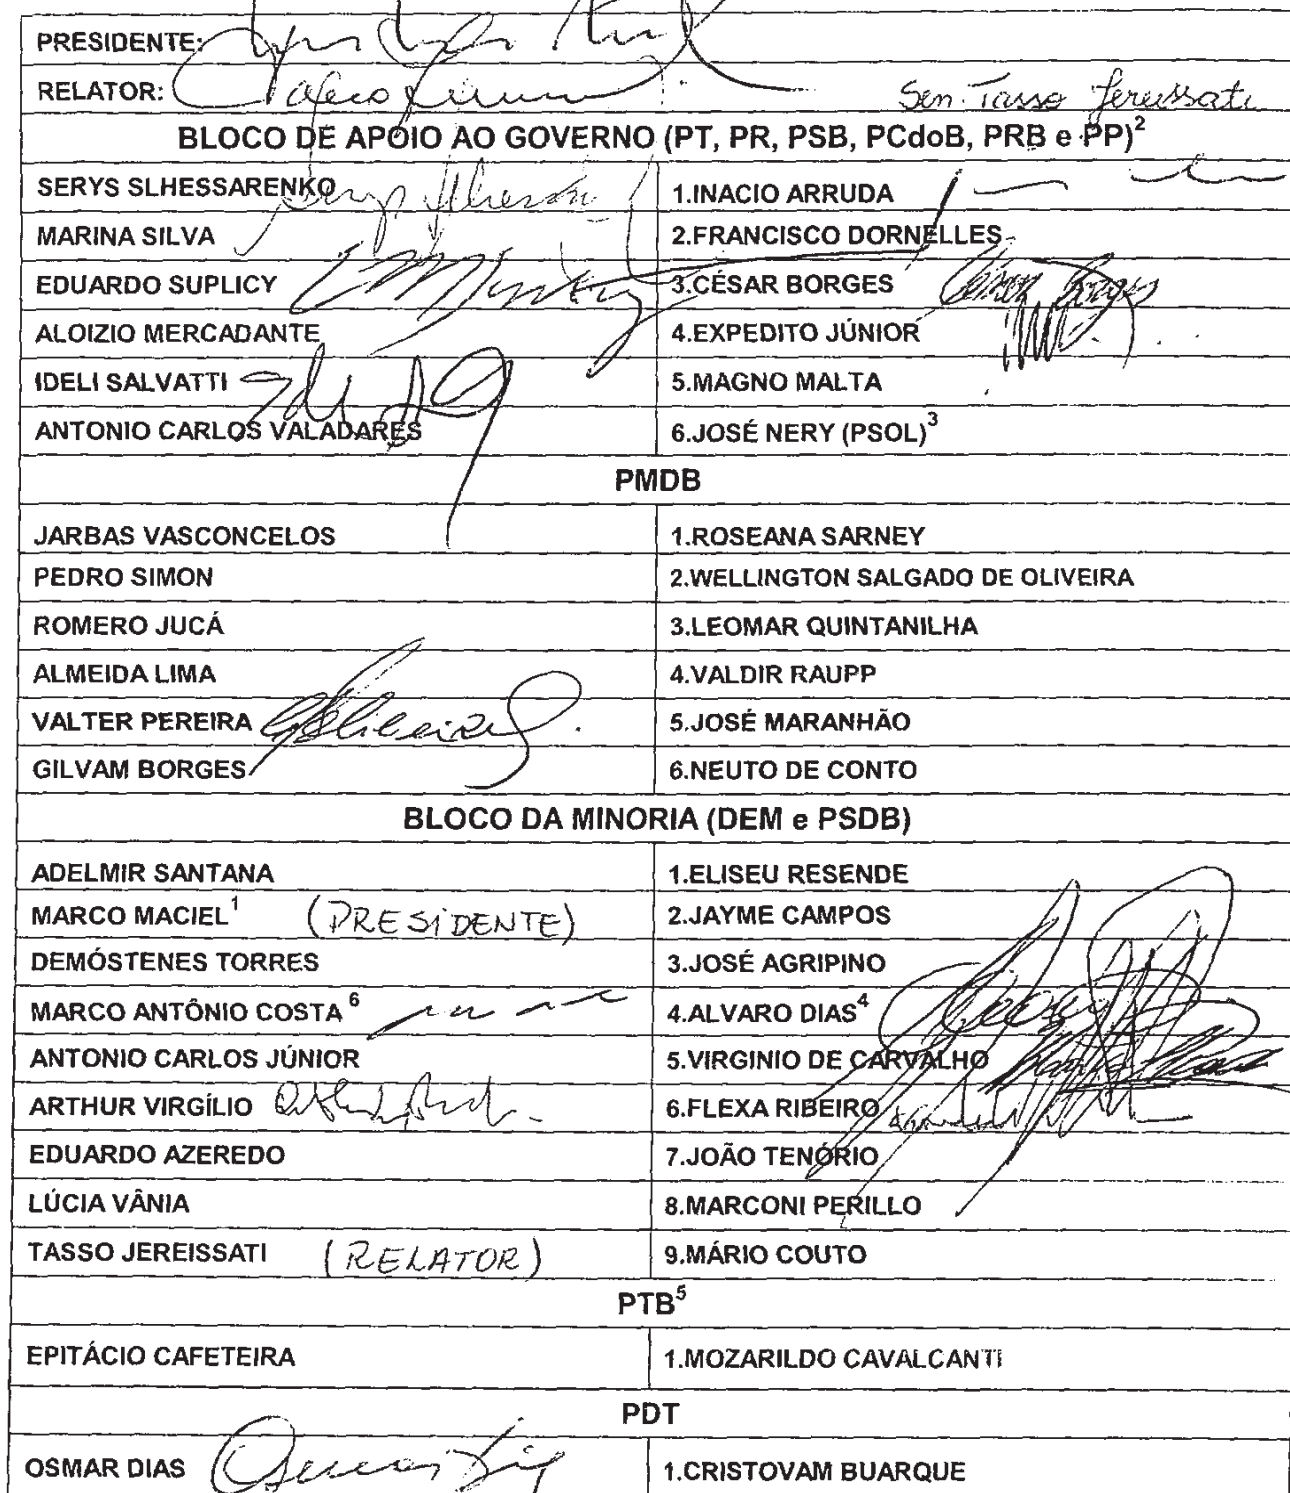 PRESIDENTE:
RELATOR: Sen. Tasso Jereissati
BLOCO DE APOIO AO GOVERNO (PT, PR, PSB, PCdoB, PRB e PP)2
SERYS SLHESSARENKO 1.INACIO ARRUDA
MARINA SILVA 2.FRANCISCO DORNELLES
EDUARDO SUPLICY 3.CÉSAR BORGES
ALOIZIO MERCADANTE 4.EXPEDITO JÚNIOR
IDELI SALVATTI 5.MAGNO MALTA
ANTONIO CARLOS VALADARES 6.JOSÉ NERY (PSOL)3
PMDB
JARBAS VASCONCELOS 1.ROSEANA SARNEY
PEDRO SIMON 2.WELLINGTON SALGADO DE OLIVEIRA
ROMERO JUCÁ 3.LEOMAR QUINTANILHA
ALMEIDA LIMA 4.VALDIR RAUPP
VALTER PEREIRA 5.JOSÉ MARANHÃO
GILVAM BORGES 6.NEUTO DE CONTO
BLOCO DA MINORIA (DEM e PSDB)
ADELMIR SANTANA 1.ELISEU RESENDE
MARCO MACIEL1 (PRESIDENTE) 2.JAYME CAMPOS
DEMÓSTENES TORRES 3.JOSÉ AGRIPINO
MARCO ANTÔNIO COSTA 6 4.ALVARO DIAS4
ANTONIO CARLOS JÚNIOR 5.VIRGINIO DE CARVALHO
ARTHUR VIRGÍLIO 6.FLEXA RIBEIRO
EDUARDO AZEREDO 7.JOÃO TENÓRIO
LÚCIA VÂNIA 8.MARCONI PERILLO
TASSO JEREISSATI (RELATOR) 9.MÁRIO COUTO
PTB5
EPITÁCIO CAFETEIRA 1.MOZARILDO CAVALCANTI
PDT
OSMAR DIAS Osmar Dias 1.CRISTOVAM BUARQUE